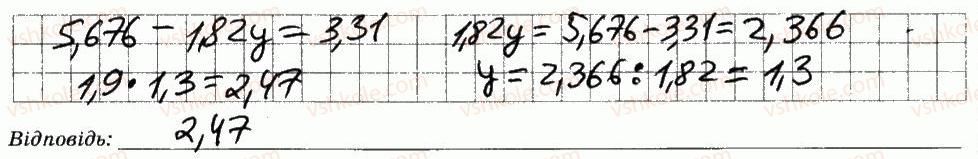 5,676 - 1,82y = 3,31
1,82y = 5,676 - 3,31 = 2,366
1,9 · 1,3 = 2,47
y = 2,366 : 1,82 = 1,3
Відповідь: 2,47